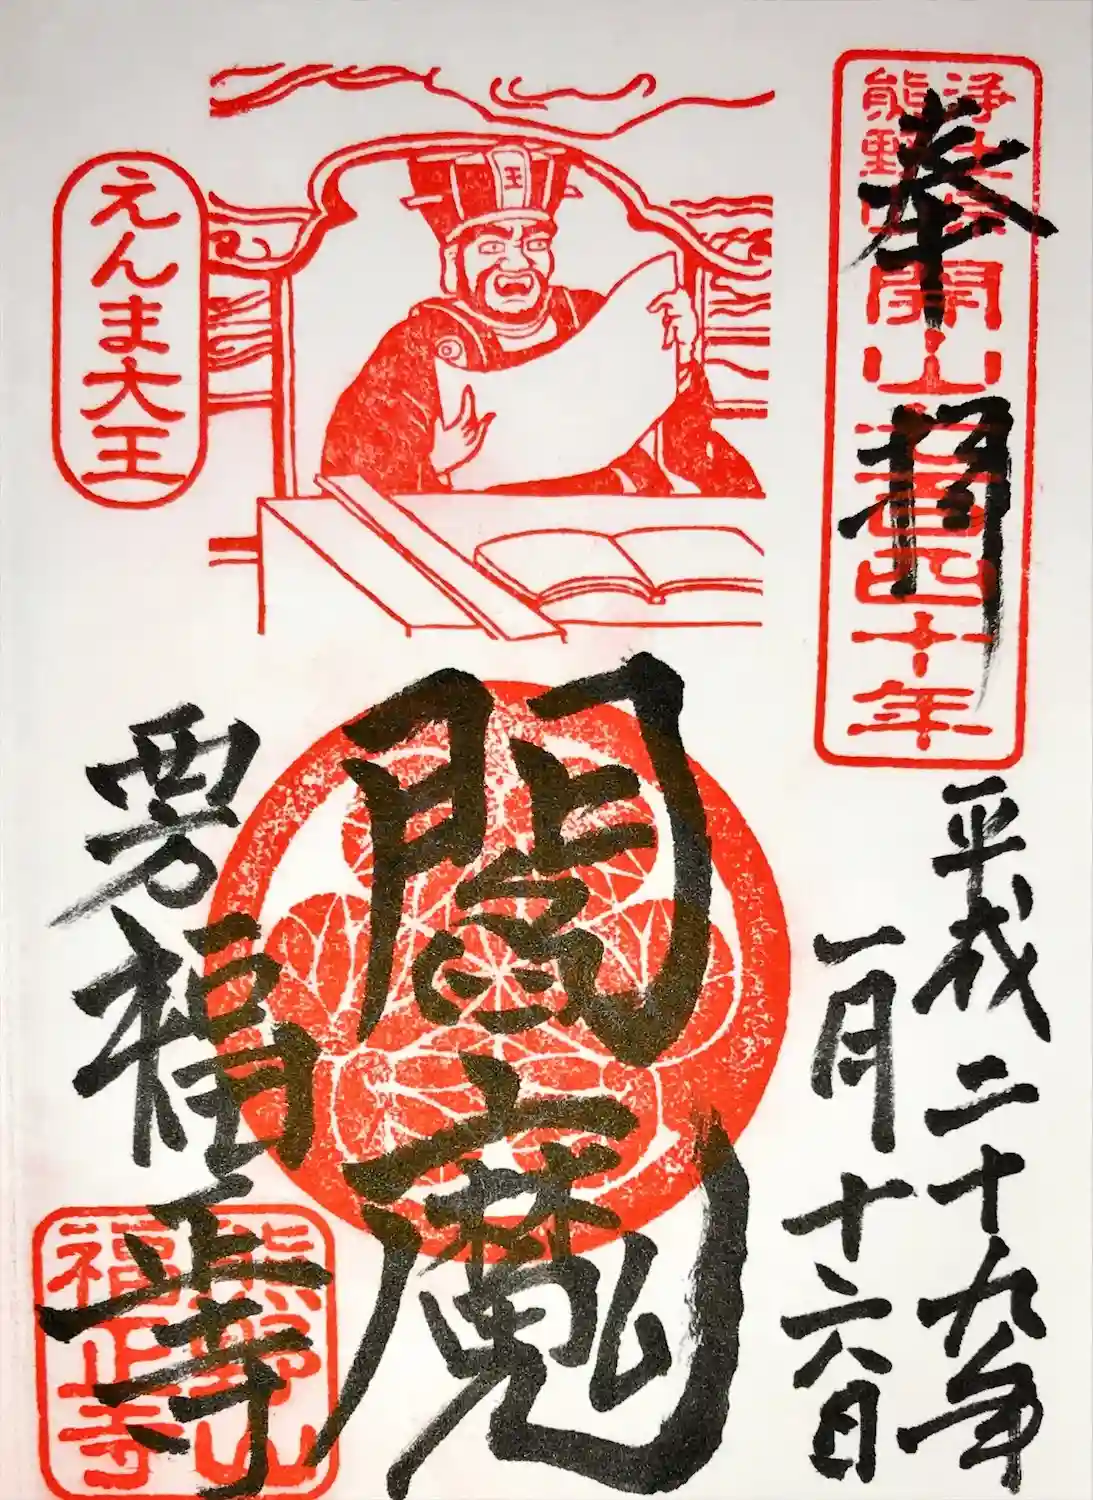 奉拝
浄土宗
熊野山
開山
百四十年
平成二十九年
一月十六日
王
閻魔
えんま大王
福正寺
熊野山
福正寺